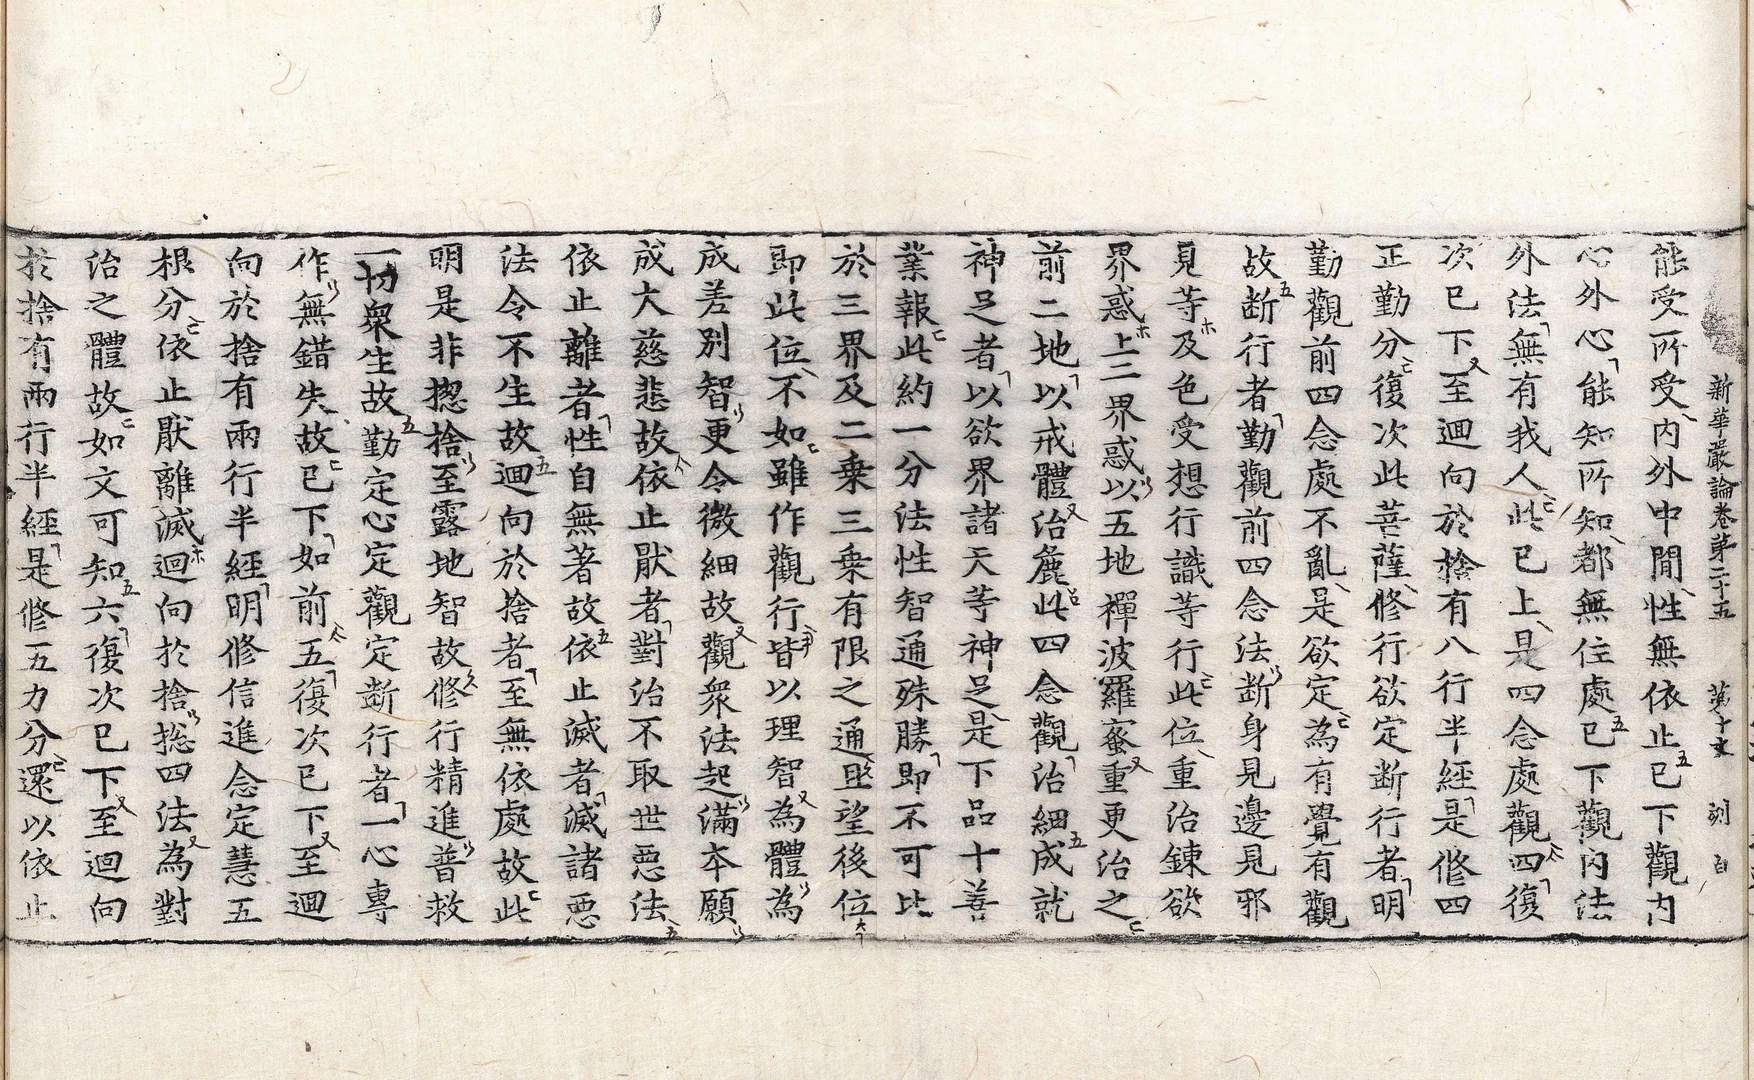 新華嚴論卷第二十五　第十丈　剅　白
能受所受內外中閒性無依止已下觀內
心外心能知所知都無住處已下觀內法
外法無有我人此已上是四念處觀四復
次已下至迴向於捨有八行半經是修四
正勤分復次此菩薩修行欲定断行者明
勤觀前四念處不亂是欲定為有覺有觀
故断行者勤觀前四念法断身見邊見邪
見等及色受想行識等行此位重治鍊欲
界惑上二界惑以五地禪波羅蜜重更治之
前二地以戒體治麁此四念觀治細成就
神足者以欲界諸天等神足是下品十善
業報此約一分法性智通殊勝即不可比
於三界及二乗三乗有限之通且望後位
即此位不如雖作觀行皆以理智為體為
成差别智更令微細故觀衆法起滿本願
成大慈悲故依止猒者對治不取世惡法
依止離者性自無著故依止滅者滅諸惡
法令不生故迴向於捨者至無依處故此
明是非揔捨至露地智故修行精進普救
一切衆生故勤定心定觀定断行者一心專
作無錯失故已下如前五復次已下至迴
向於捨有兩行半經明修信進念定慧五
根分依止猒離滅迴向於捨捴四法為對
治之體故如文可知六復次已下至迴向
於捨有兩行半經是修五力分還以依止